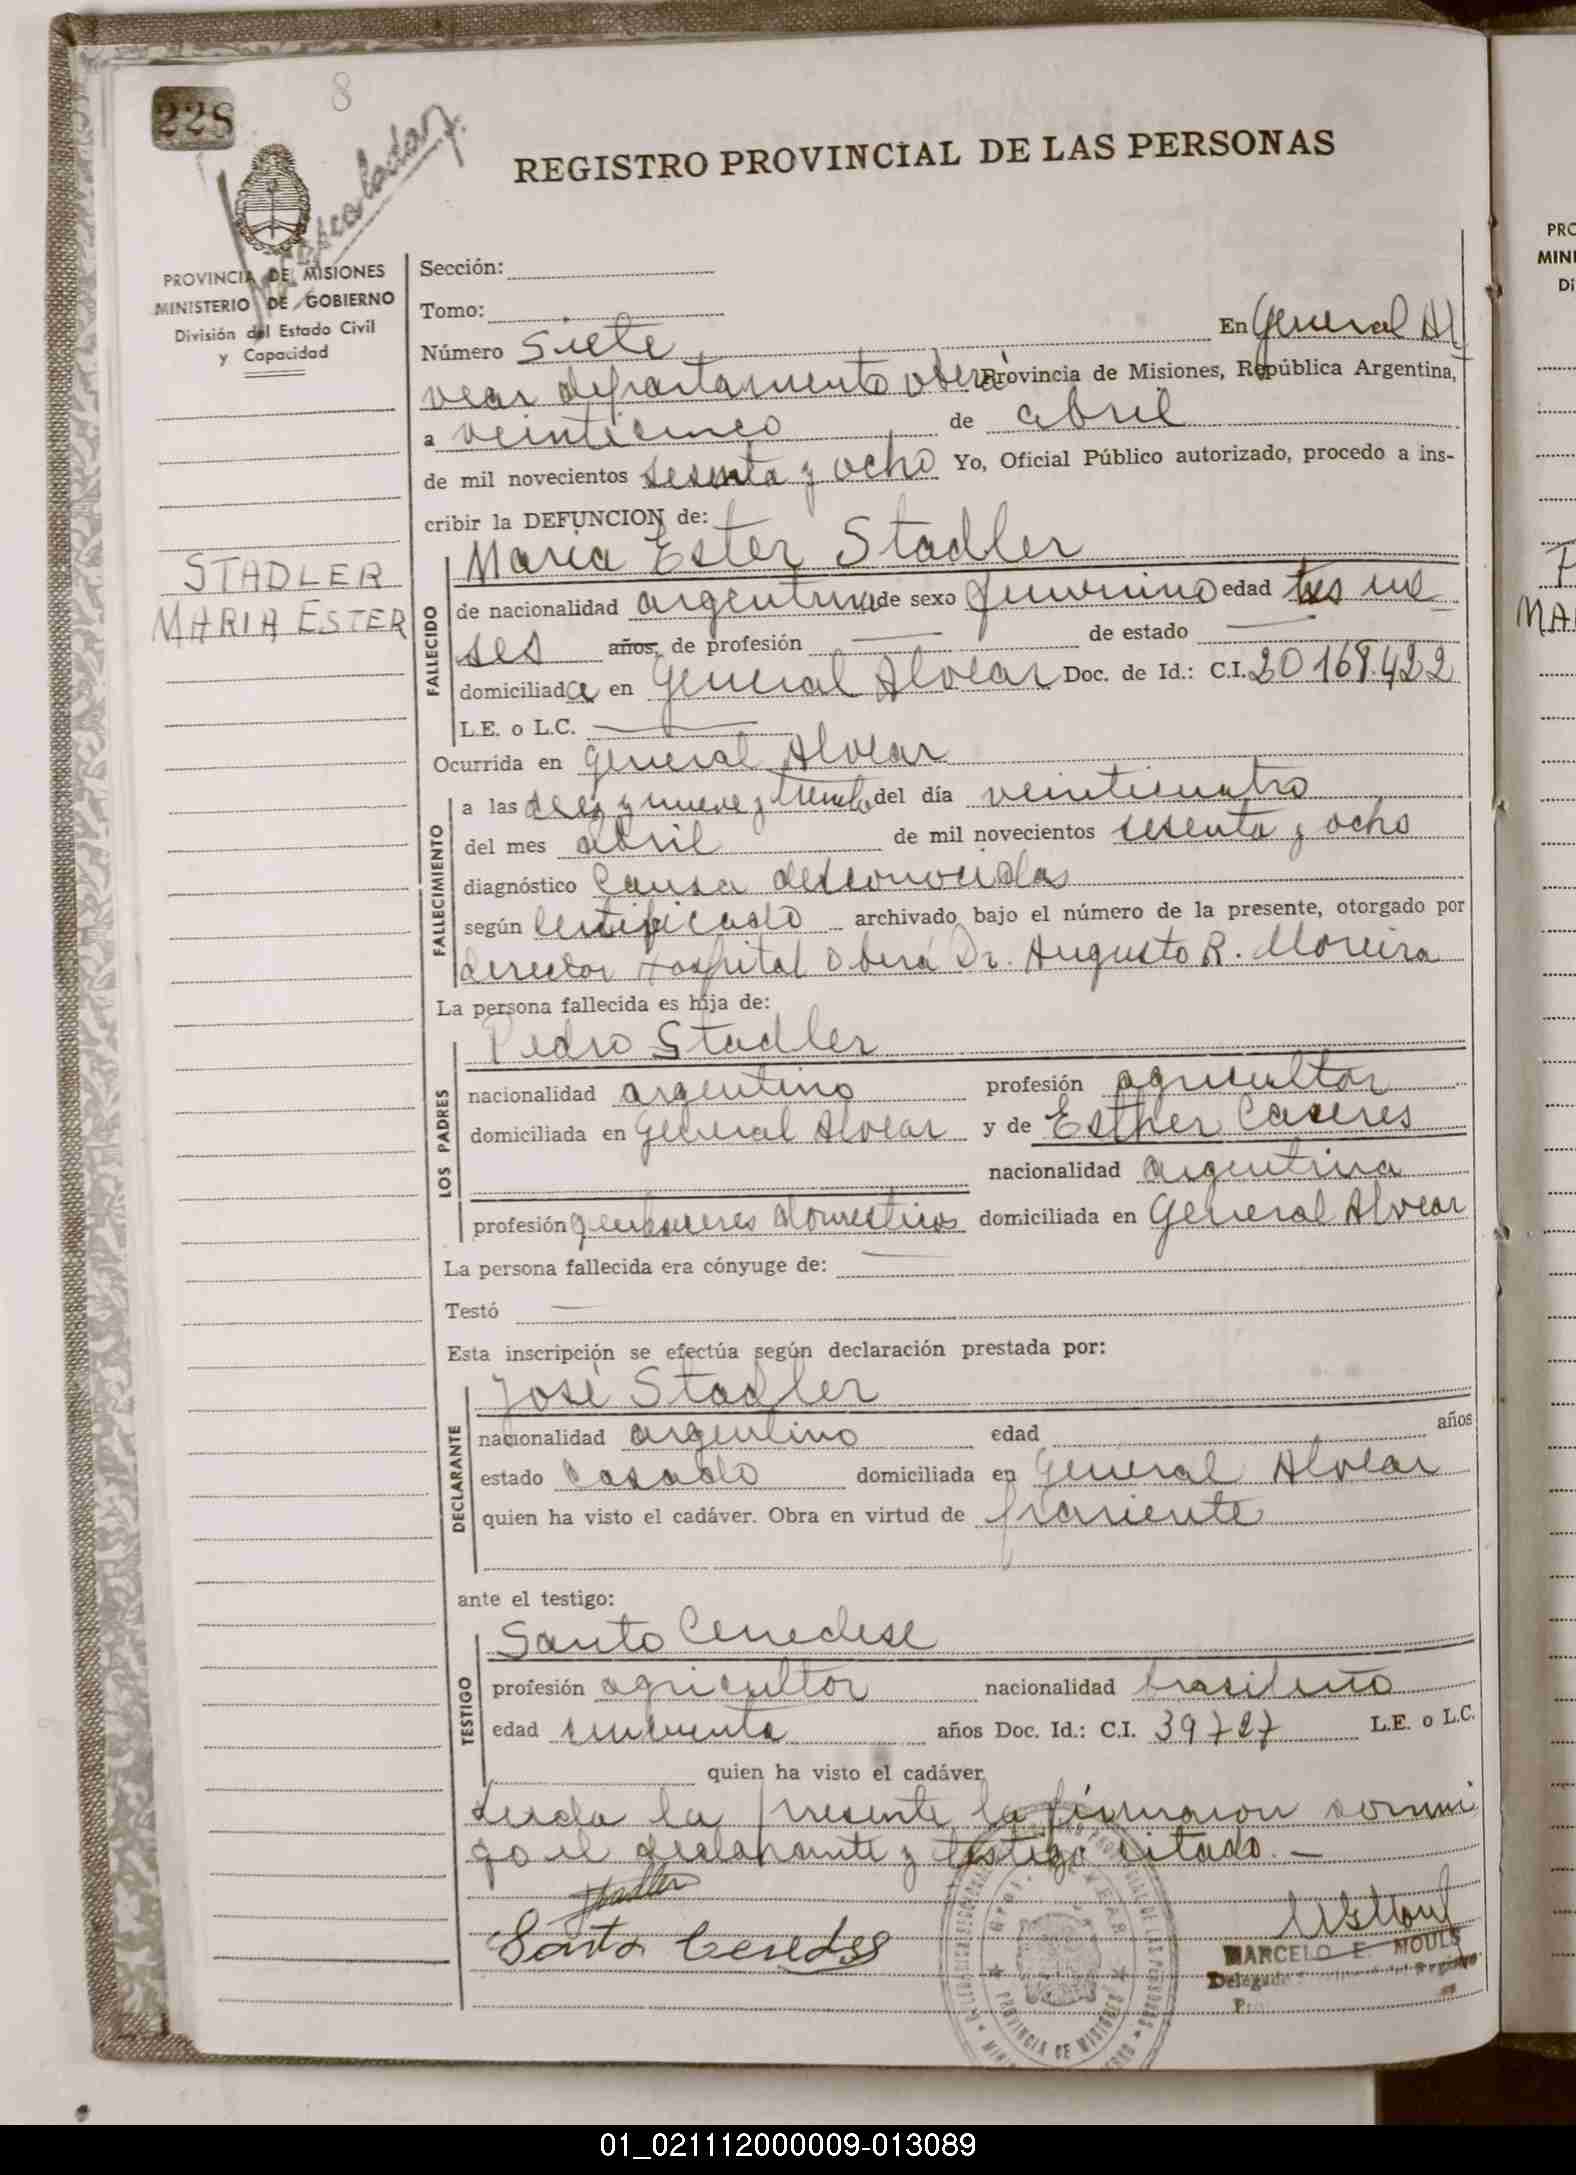 228
8
REGISTRO PROVINCIAL DE LAS PERSONAS
PROVINCIA DE MISIONES
MINISTERIO DE GOBIERNO
División del Estado Civil
y Capacidad
STADLER
MARIA ESTER
Sección:
Tomo:
Número Siete En General Al
vear departamento Oberá Provincia de Misiones, República Argentina,
a veinticinco de abril
de mil novecientos sesenta y ocho Yo, Oficial Público autorizado, procedo a ins-
cribir la DEFUNCION de:
FALLECIDO
Maria Ester Stadler
de nacionalidad argentina de sexo femenino edad tres me
ses años, de profesión de estado
domiciliada en General Alvear Doc. de Id.: C.I. 20168.422
L.E. o L.C.
Ocurrida en General Alvear
FALLECIMIENTO
a las diez y nueve y treinta del día veinticuatro
del mes abril de mil novecientos sesenta y ocho
diagnóstico Causa desconocidas
según certificado archivado bajo el número de la presente, otorgado por
director Hospital Oberá Dr. Augusto R. Moreira
La persona fallecida es hija de:
LOS PADRES
Pedro Stadler
nacionalidad argentino profesión agricultor
domiciliada en General Alvear y de Esther Caseres
nacionalidad argentina
profesión quehaceres domesticos domiciliada en General Alvear
La persona fallecida era cónyuge de:
Testó
Esta inscripción se efectúa según declaración prestada por:
DECLARANTE
José Stadler
nacionalidad argentino edad años
estado casado domiciliada en General Alvear
quien ha visto el cadáver. Obra en virtud de pariente
ante el testigo:
TESTIGO
Santo Cenedese
profesión agricultor nacionalidad brasileño
edad cincuenta años Doc. Id.: C.I. 39727 L.E. o L.C.
quien ha visto el cadáver
Leida la presente la firmaron conmi
go el declarante y testigo citado. —
Stadler
Santo Cenedese
GRAL. ALVEAR
PROVINCIA DE MISIONES
MARCELO E. MOULS
PRO
MINI
Di
MA
01_021112000009-013089